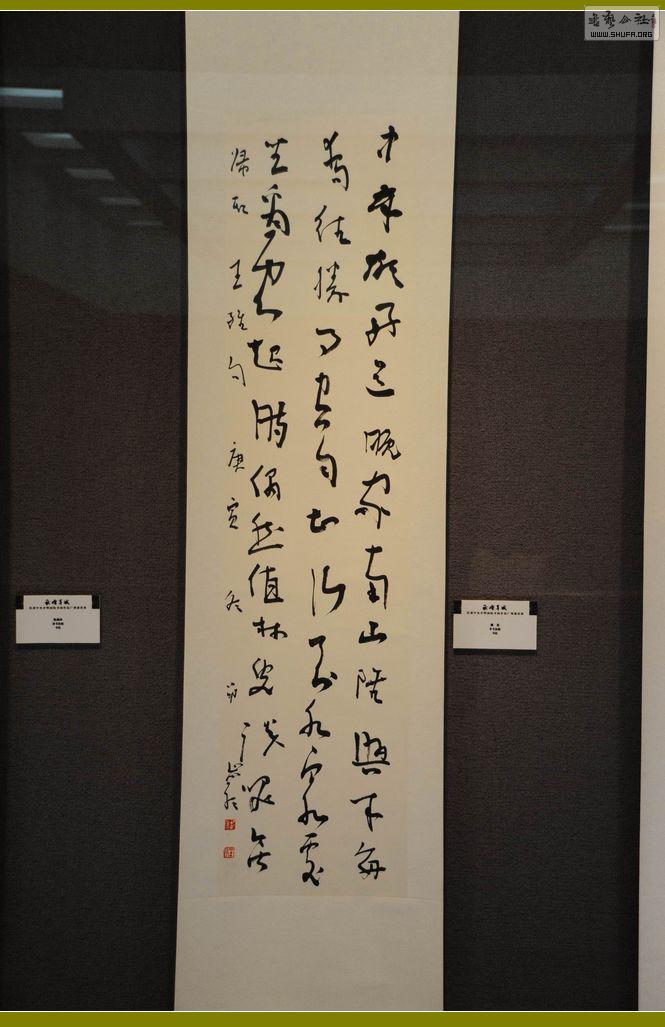 書藝公社
WWW.SHUFA.ORG
中歲頗好道晚家南山陲興來每
獨往勝事空自知行到水窮處
坐看雲起時偶然值林叟談咲無
帰期 王維句 庚寅冬